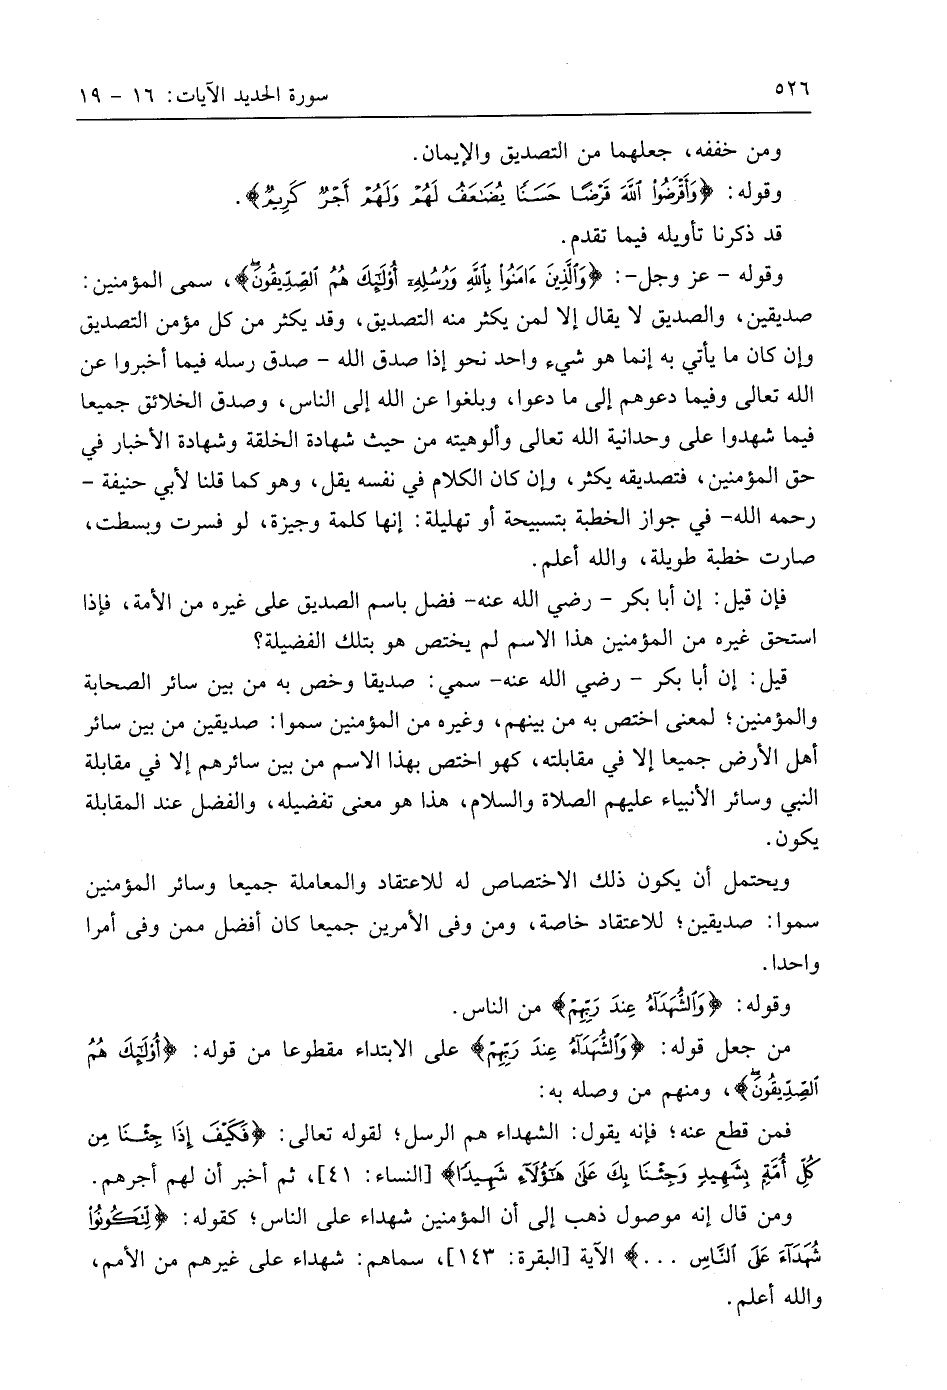 ٥٢٦
سورة الحديد الآيات: ١٦ - ١٩
ومن خففه، جعلهما من التصديق والإيمان.
وقوله: ﴿وَأَقْرَضُوا۟ ٱللَّهَ قَرْضًا حَسَنًا يُضَٰعَفُ لَهُمْ وَلَهُمْ أَجْرٌ كَرِيمٌ﴾.
قد ذكرنا تأويله فيما تقدم.
وقوله - عز وجل-: ﴿وَٱلَّذِينَ ءَامَنُوا۟ بِٱللَّهِ وَرُسُلِهِۦٓ أُو۟لَٰٓئِكَ هُمُ ٱلصِّدِّيقُونَۖ﴾، سمى المؤمنين:
صديقين، والصديق لا يقال إلا لمن يكثر منه التصديق، وقد يكثر من كل مؤمن التصديق
وإن كان ما يأتي به إنما هو شيء واحد نحو إذا صدق الله - صدق رسله فيما أخبروا عن
الله تعالى وفيما دعوهم إلى ما دعوا، وبلغوا عن الله إلى الناس، وصدق الخلائق جميعا
فيما شهدوا على وحدانية الله تعالى وألوهيته من حيث شهادة الخلقة وشهادة الأخبار في
حق المؤمنين، فتصديقه يكثر، وإن كان الكلام في نفسه يقل، وهو كما قلنا لأبي حنيفة -
رحمه الله- في جواز الخطبة بتسبيحة أو تهليلة: إنها كلمة وجيزة، لو فسرت وبسطت،
صارت خطبة طويلة، والله أعلم.
فإن قيل: إن أبا بكر - رضي الله عنه- فضل باسم الصديق على غيره من الأمة، فإذا
استحق غيره من المؤمنين هذا الاسم لم يختص هو بتلك الفضيلة؟
قيل: إن أبا بكر - رضي الله عنه- سمي: صديقا وخص به من بين سائر الصحابة
والمؤمنين؛ لمعنى اختص به من بينهم، وغيره من المؤمنين سموا: صديقين من بين سائر
أهل الأرض جميعا إلا في مقابلته، كهو اختص بهذا الاسم من بين سائرهم إلا في مقابلة
النبي وسائر الأنبياء عليهم الصلاة والسلام، هذا هو معنى تفضيله، والفضل عند المقابلة
يكون.
ويحتمل أن يكون ذلك الاختصاص له للاعتقاد والمعاملة جميعا وسائر المؤمنين
سموا: صديقين؛ للاعتقاد خاصة، ومن وفى الأمرين جميعا كان أفضل ممن وفى أمرا
واحدا.
وقوله: ﴿وَٱلشُّهَدَآءُ عِندَ رَبِّهِمْ﴾ من الناس.
من جعل قوله: ﴿وَٱلشُّهَدَآءُ عِندَ رَبِّهِمْ﴾ على الابتداء مقطوعا من قوله: ﴿أُو۟لَٰٓئِكَ هُمُ
ٱلصِّدِّيقُونَۖ﴾، ومنهم من وصله به:
فمن قطع عنه؛ فإنه يقول: الشهداء هم الرسل؛ لقوله تعالى: ﴿فَكَيْفَ إِذَا جِئْنَا مِن
كُلِّ أُمَّةٍۭ بِشَهِيدٍ وَجِئْنَا بِكَ عَلَىٰ هَٰٓؤُلَآءِ شَهِيدًا﴾ [النساء: ٤١]، ثم أخبر أن لهم أجرهم.
ومن قال إنه موصول ذهب إلى أن المؤمنين شهداء على الناس؛ كقوله: ﴿لِّتَكُونُوا۟
شُهَدَآءَ عَلَى ٱلنَّاسِ ...﴾ الآية [البقرة: ١٤٣]، سماهم: شهداء على غيرهم من الأمم،
والله أعلم.